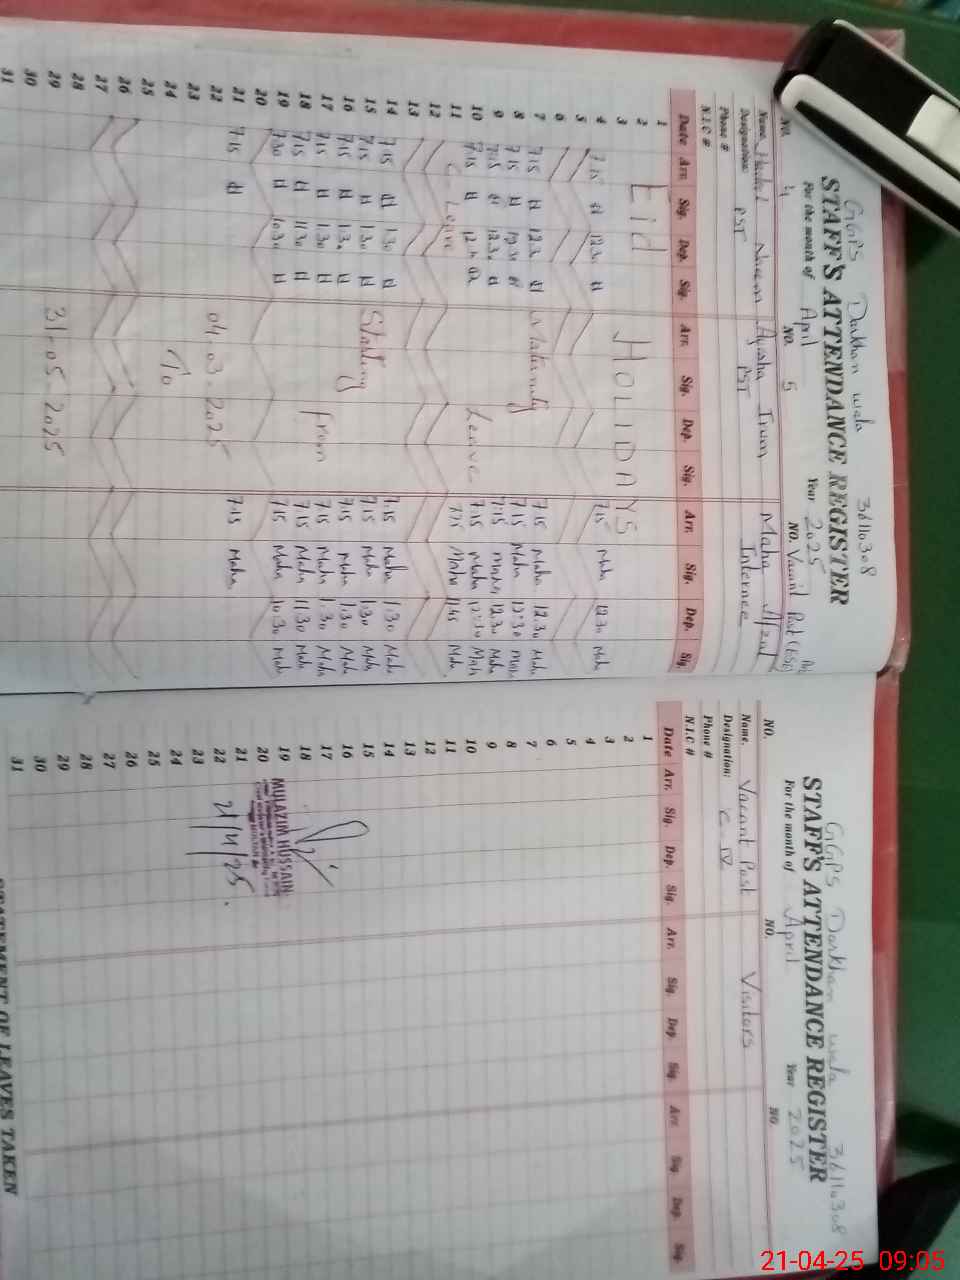 GGPS Darkhan wala 36110308
STAFF'S ATTENDANCE REGISTER
For the month of April Year 2025
NO. 4 NO. 5 NO. Vacant Post (ESE)
Name. Naeem Ayesha Irum Maha Afzal
Designation: PST PST Internee
Phone #
N.I.C #
Date Arr. Sig. Dep. Sig. Arr. Sig. Dep. Sig. Arr. Sig. Dep. Sig.
1
2 Eid HOLIDAYS
3
4 7.15 12.30 7.15 Maha 12.30 Maha
5
6
7 7.15 12.30 Maternity 7.15 Maha 12.30 Maha
8 7.15 12.30 7.15 Maha 12:30 Maha
9 7.15 12.30 7:15 Maha 12.30 Maha
10 7.15 12.30 Leave 7.15 Maha 12:30 Maha
11 C. Leave 7.15 Maha 11.45 Maha
12
13
14 7.15 1.30 7.15 Maha 1:30 Maha
15 7.15 1.30 Starting 7.15 Maha 1:30 Maha
16 7.15 1.30 7.15 Maha 1:30 Maha
17 7.15 1.30 from 7.15 Maha 1:30 Maha
18 7.15 11.30 7.15 Maha 11.30 Maha
19 7.30 10.30 7.15 Maha 10.30 Maha
20
21 7.15 7.15 Maha
22 04.03.2025
23
24 To
25
26
27
28
29 31-05-2025
30
31
GGPS Darkhan wala 36110308
STAFF'S ATTENDANCE REGISTER
For the month of April Year 2025
NO. NO. NO.
Name. Vacant Post Visitors
Designation: C IV
Phone #
N.I.C #
Date Arr. Sig. Dep. Sig. Arr. Sig. Dep. Sig. Arr. Sig. Dep. Sig.
1
2
3
4
5
6
7
8
9
10
11
12
13
14
15
16
17
18
19 MULAZIM HUSSAIN
20
21
22 21/4/25.
23
24
25
26
27
28
29
30
31
STATEMENT OF LEAVES TAKEN
21-04-25 09:05